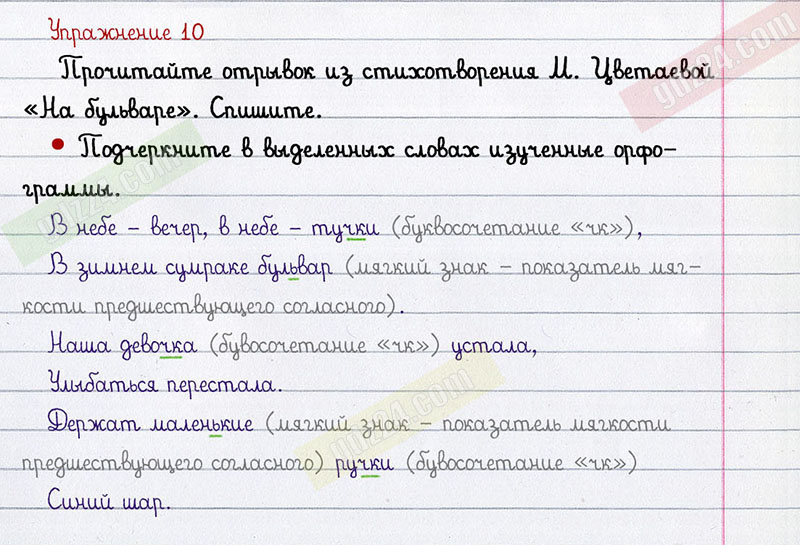 Упражнение 10
Прочитайте отрывок из стихотворения М. Цветаевой
«На бульваре». Спишите.
• Подчеркните в выделенных словах изученные орфо-
граммы.
В небе – вечер, в небе – тучки (буквосочетание «чк»),
В зимнем сумраке бульвар (мягкий знак – показатель мяг-
кости предшествующего согласного).
Наша девочка (бувосочетание «чк») устала,
Улыбаться перестала.
Держат маленькие (мягкий знак – показатель мягкости
предшествующего согласного) ручки (бувосочетание «чк»)
Синий шар.